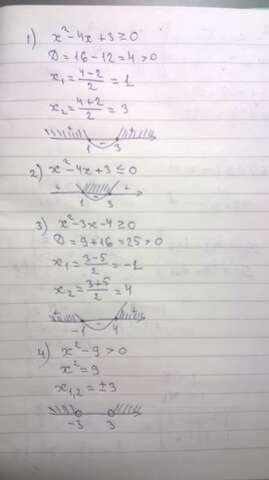 1) x²-4x+3≥0
D=16-12=4>0
x₁=(4-2)/2=1
x₂=(4+2)/2=3
+ - +
1 3
2) x²-4x+3≤0
+ - +
1 3
3) x²-3x-4≥0
D=9+16=25>0
x₁=(3-5)/2=-1
x₂=(3+5)/2=4
+ - +
-1 4
4) x²-9>0
x²=9
x₁,₂=±3
-3 3